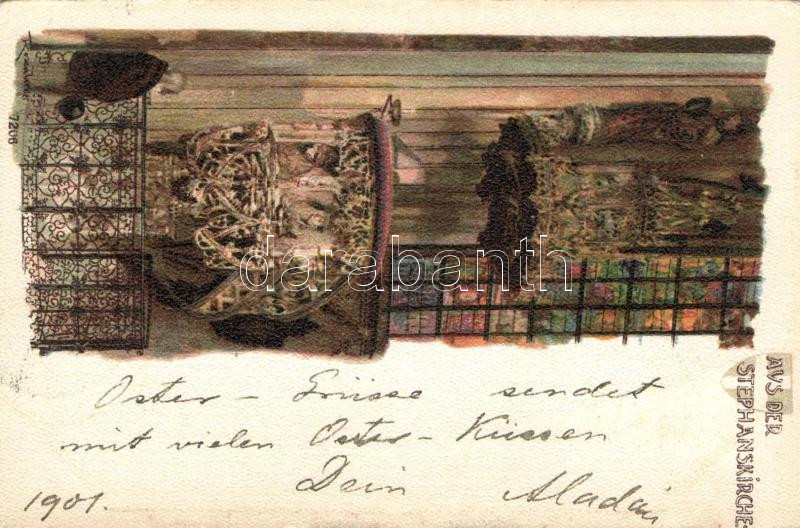 7206
darabanth
AVS DER
STEPHANSKIRCHE.
Oster - Grüsse sendet
mit vielen Oster - Küssen
Dein Aladár
1901.